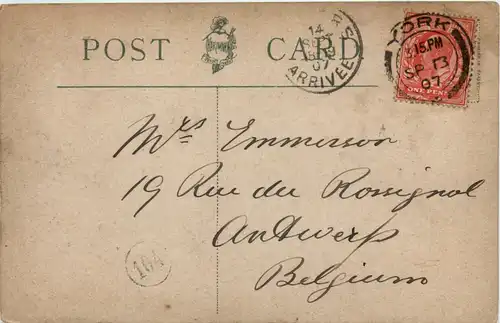 POST CARD
14
SEPT
07
ARRIVEE
YORK
15.PM
SP 13
07
ONE PENNY
Mrs Emmerson
19 Rue du Rossignol
Antwerp
Belgium
164